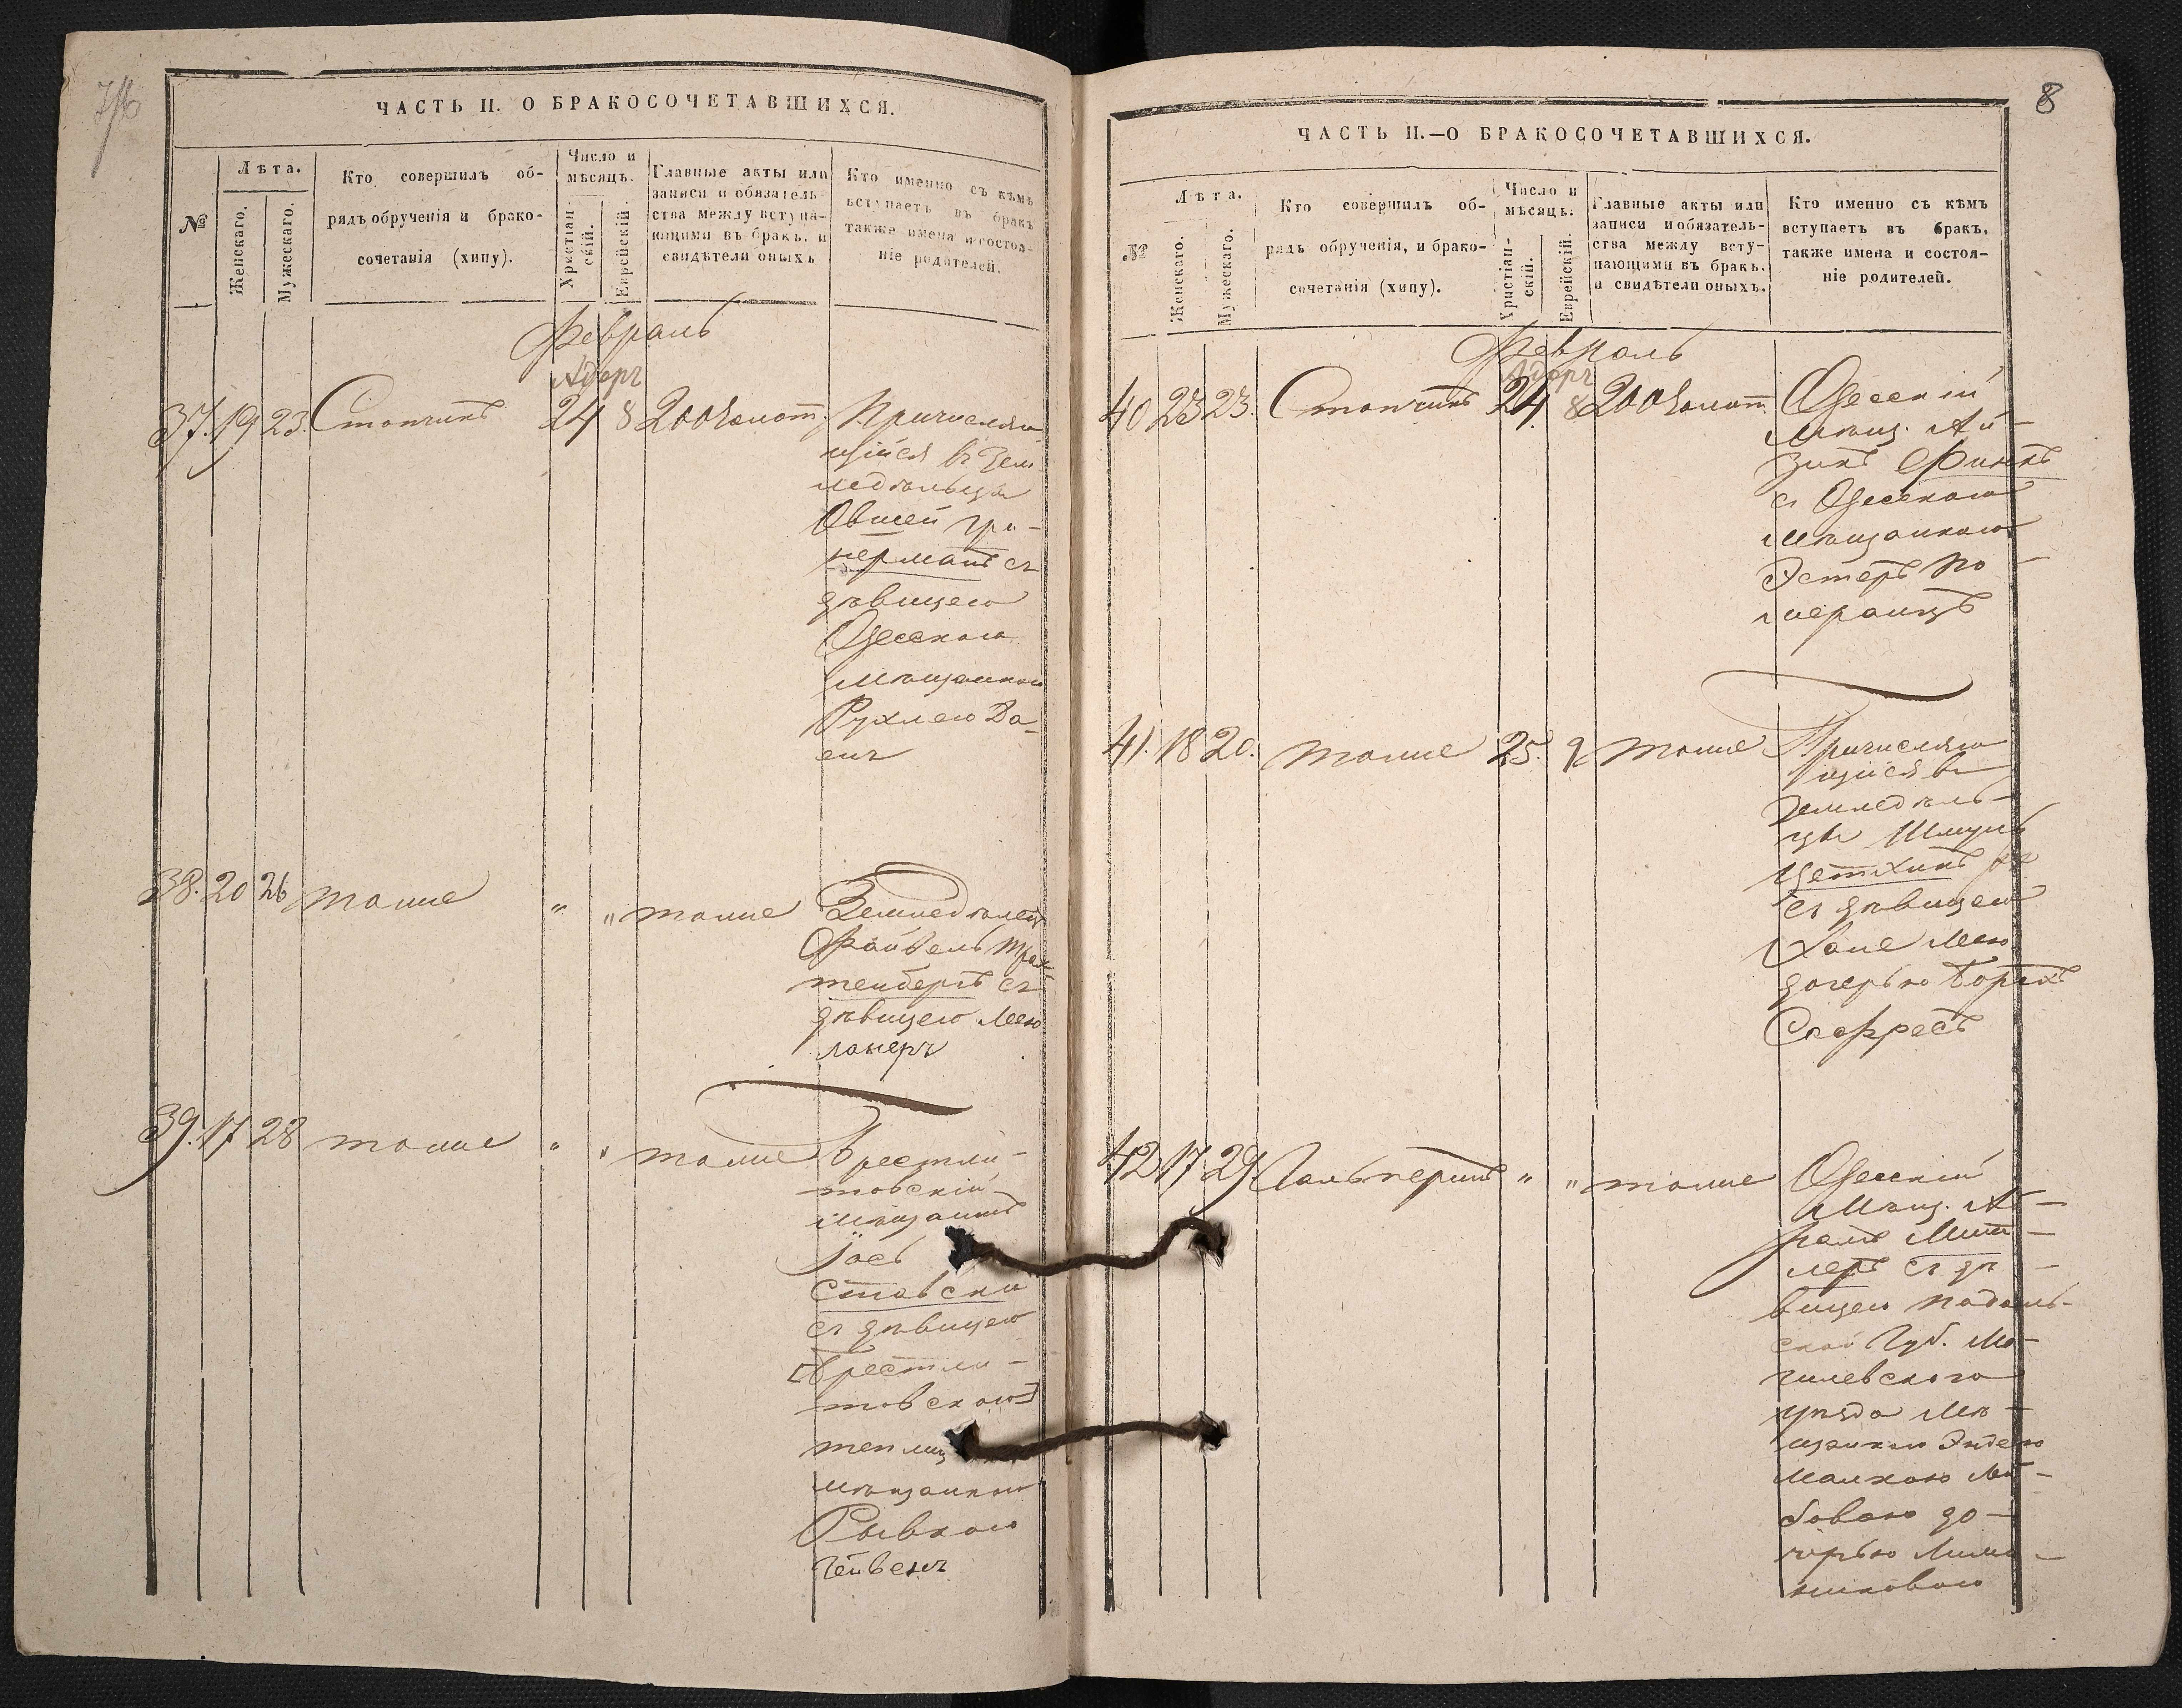 ЧАСТЬ II. О БРАКОСОЧЕТАВШИХСЯ.
№
Лѣта.
Женскаго.
Мужескаго.
Кто совершилъ об-
рядъ обрученія и брако-
сочетанія (хипу).
Число и
мѣсяцъ.
Христіан-
скій.
Еврейскій.
Главные акты или
записи и обязатель-
ства между вступа-
ющими въ бракъ, и
свидѣтели оныхъ
Кто именно съ кѣмъ
вступаетъ въ бракъ
также имена и состоя-
ніе родителей.
Февраль
Адеръ
37. 19 23. 24 8 200 золот.
Причисляю
щійся въ Зем
ледѣльцы
Овшей
съ
дѣвицею
Одесскою
мѣщанкою
Рухлею
38. 20 26 тоже " " тоже
Земледѣлецъ
Файвель Трах
тенбергъ съ
дѣвицею Лею
ланеръ
39. 17 28 тоже " " тоже
Брестли-
товскій
мѣщанинъ
Іось
Ставски
съ дѣвицею
[Брестли-
товскою]
мѣщанкою
Рывкою
8
ЧАСТЬ II.—О БРАКОСОЧЕТАВШИХСЯ.
№
Лѣта.
Женскаго.
Мужескаго.
Кто совершилъ об-
рядъ обрученія, и брако-
сочетанія (хипу).
Число и
мѣсяцъ.
Христіан-
скій.
Еврейскій.
Главные акты или
записи и обязатель-
ства между всту-
пающими въ бракъ.
и свидѣтели оныхъ.
Кто именно съ кѣмъ
вступаетъ въ бракъ,
также имена и состоя-
ніе родителей.
Февраль
Адеръ
40 23 23. 24. 8 200 золот.
Одесскій
мѣщ. Ай-
зикъ Финкъ
съ Одесскою
мѣщанкою
Эстеръ По-
меранцъ
41. 18 20. тоже 25. 9 тоже
Причисляю
щійся въ
Земледѣль-
цы Шмуль
съ дѣвицею
Хане Лею
дочерью
42 17 29 Гальперинъ " " тоже
Одесскій
Мѣщ. Аб-
рамъ Мит-
леръ съ дѣ-
вицею Подоль-
ской Губ. Мо-
гилевского
уѣзда Мѣ-
щанкою Энтею
Малкою Лей-
бовою до-
черью